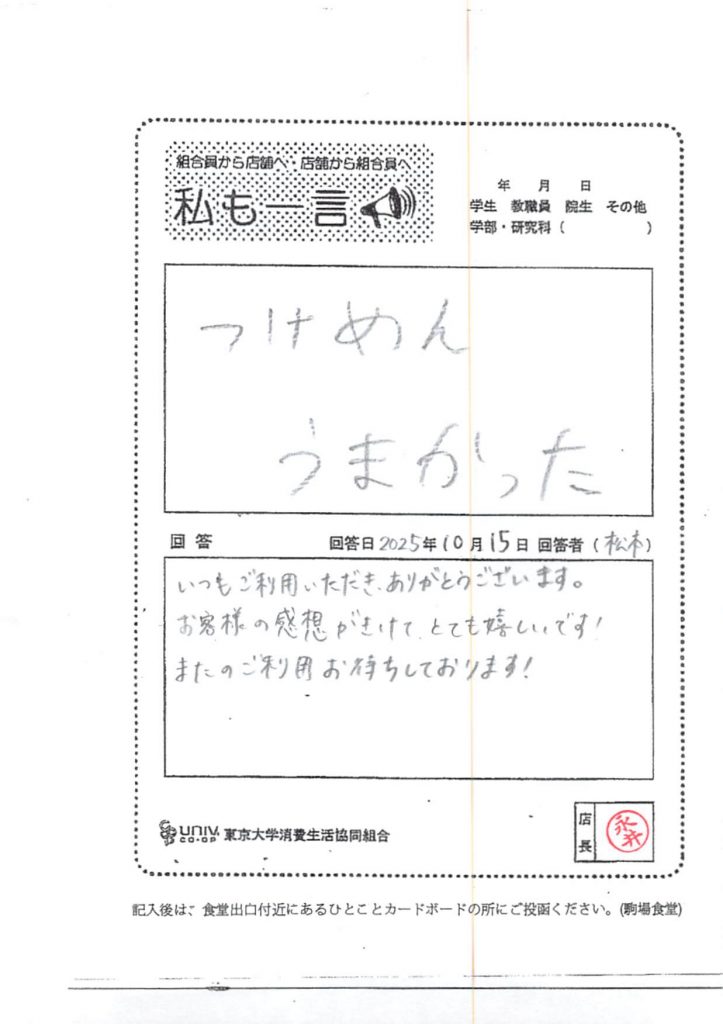 組合員から店舗へ・店舗から組合員へ
私も一言
年 月 日
学生 教職員 院生 その他
学部・研究科 ( )
つけめん
うまかった
回答 回答日2025年10月15日 回答者 (松本)
いつもご利用いただき、ありがとうございます。
お客様の感想がきけて、とても嬉しいです!
またのご利用お待ちしております!
UNIV. CO-OP 東京大学消費生活協同組合
店長 永井
記入後は、食堂出口付近にあるひとことカードボードの所にご投函ください。(駒場食堂)